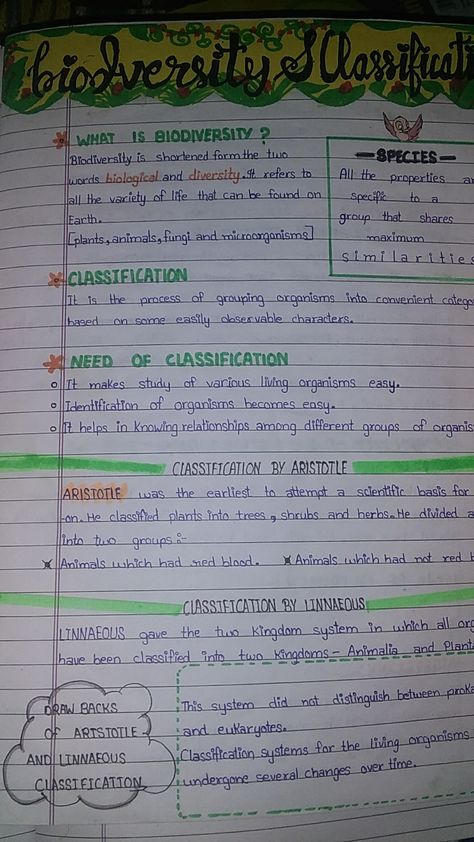 biodversity & Classificati
WHAT IS BIODIVERSITY ?
Biodiversity is shortened form the two
words biological and diversity. It refers to
all the variety of life that can be found on
Earth.
[plants, animals, fungi and microorganisms]
SPECIES
All the properties a
specific to a
group that shares
maximum
similarities
CLASSIFICATION
It is the process of grouping organisms into convenient catego
based on some easily observable characters.
NEED OF CLASSIFICATION
It makes study of various living organisms easy.
Identification of organisms becomes easy.
It helps in knowing relationships among different groups of organis
CLASSIFICATION BY ARISTOTLE
ARISTOTLE was the earliest to attempt a scientific basis for
-on. He classified plants into trees, shrubs and herbs. He divided a
into two groups :-
Animals which had red blood. Animals which had not red b
CLASSIFICATION BY LINNAEOUS
LINNAEOUS gave the two kingdom system in which all org
have been classified into two kingdoms - Animalia and Planta
DRAW BACKS
OF ARISTOTLE
AND LINNAEOUS
CLASSIFICATION
This system did not distinguish between proka
and eukaryotes.
Classification systems for the living organisms
undergone several changes over time.